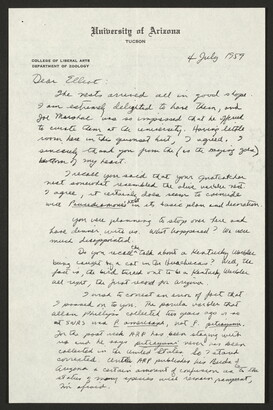 University of Arizona
TUCSON
COLLEGE OF LIBERAL ARTS
DEPARTMENT OF ZOOLOGY
4 July 1959
Dear Elliot:
The nests arrived all in good shape
I am extremely delighted to have them, and
Joe Marshall was so impressed that he offered
to curate them at the university. Having little
room here in this quonset hut, I agreed. I
sincerely thank you from the (as the saying goes)
bottom of my heart.
I recall you said that your Gnatcatcher
nest somewhat resembled the olive warbler nest.
I agree, it certainly does seem to coincide
with Peucedramus' nest in its basic plan and decoration
You were planning to stop over here and
have dinner with us. What happened? We were
much disappointed.
Do you recall the talk about a Kentucky Warbler
being caught by a cat in the Huachucas? Well, the
fact is, the bird turned out to be a Kentucky Warbler
all right, the first record for Arizona.
I need to correct an error of fact that
I passed on to you. The
warbler that
Allan Phillips collected this years ago is
at
was P. americana, not P. pitiayumi.
For the past week ARP has been staying with
us and he says pitiayumi never has been
collected in the United States. So I stand
corrected. Until ARP publishes his Birds of
Arizona a certain amount of confusion as to the
status of many species will remain rampant,
I'm afraid.